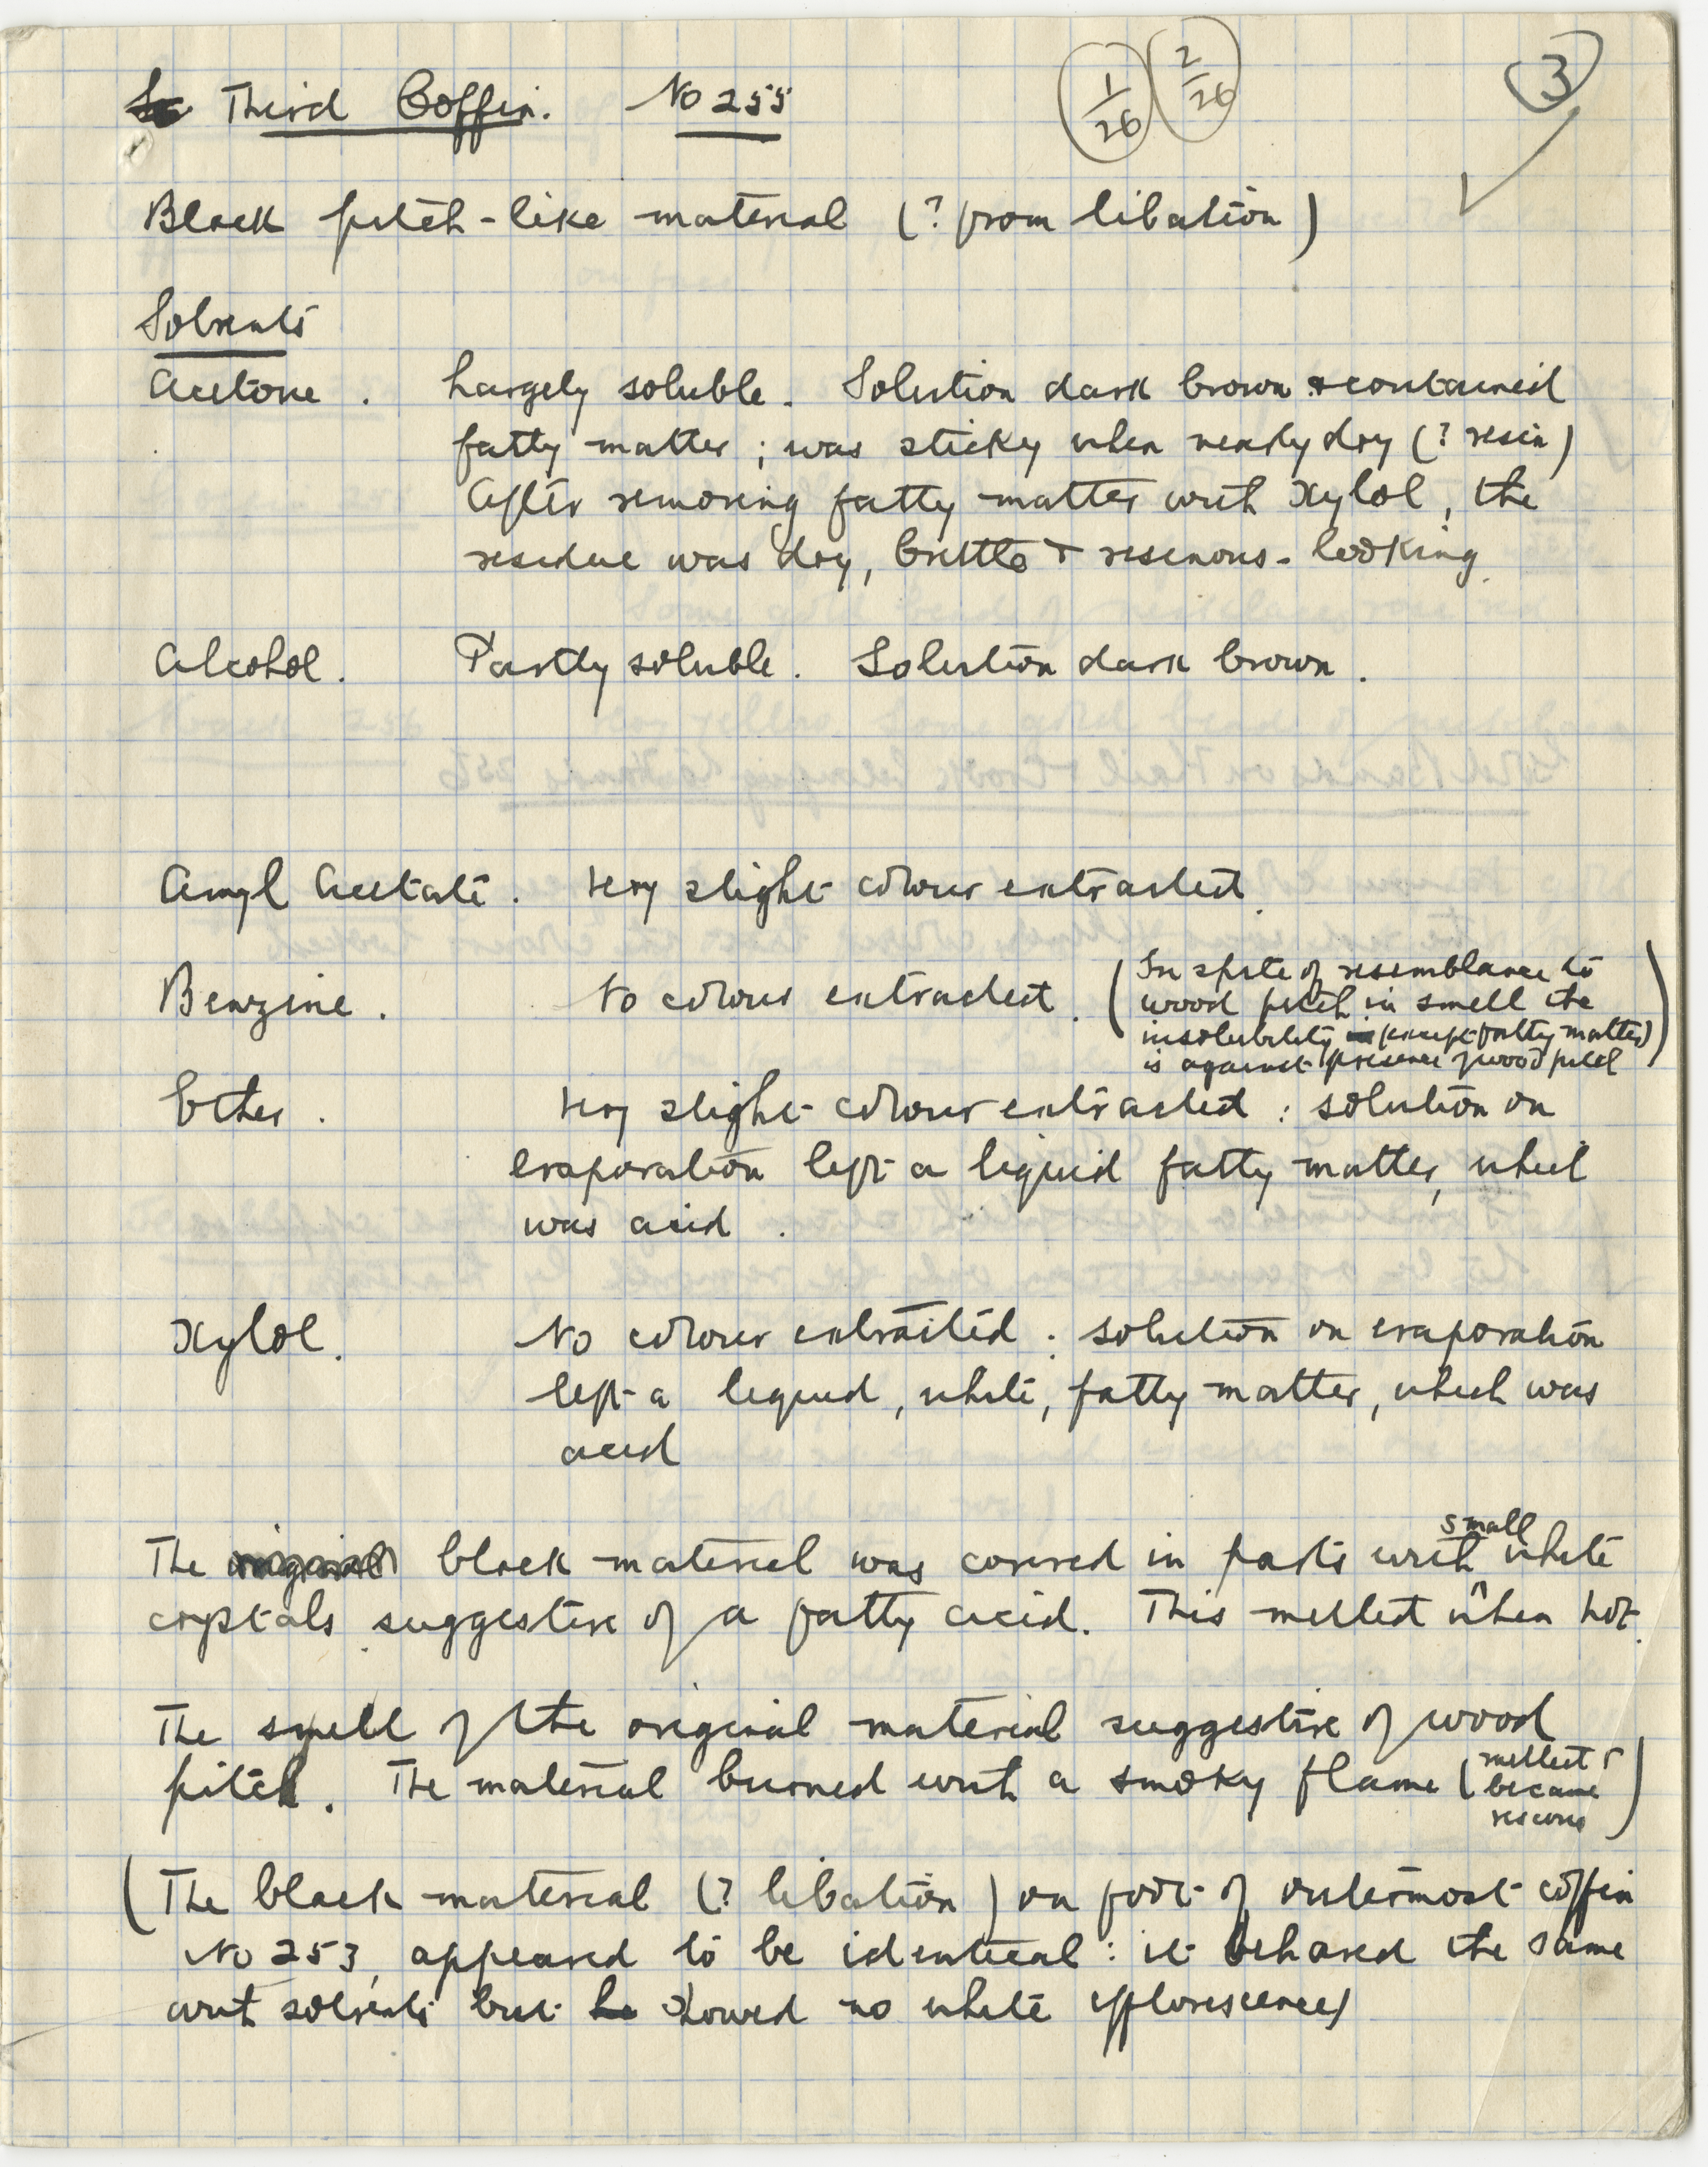 Third Coffin. No 255
1/26 2/26
3
Black pitch-like material (? from libation)
Solvents
Acetone. Largely soluble. Solution dark brown & contained
fatty matter; was sticky when nearly dry (? resin)
After removing fatty matter with Xylol, the
residue was dry, brittle & resinous-looking.
Alcohol. Partly soluble. Solution dark brown.
Amyl Acetate. Very slight colour extracted.
Benzine. No colour extracted.
(In spite of resemblance to
wood pitch in smell the
insolubility (except fatty matter)
is against presence of wood pitch)
Ether. Very slight colour extracted: solution on
evaporation left a liquid fatty matter, which
was acid.
Xylol. No colour extracted: solution on evaporation
left a liquid, white, fatty matter, which was
acid
The original black material was covered in parts with small white
crystals suggestive of a fatty acid. This melted when hot.
The smell of the original material suggestive of wood
pitch. The material burned with a smoky flame (melted &
became
viscous)
(The black material (? libation) on foot of outermost coffin
No 253, appeared to be identical: it behaved the same
with solvents but showed no white efflorescence)